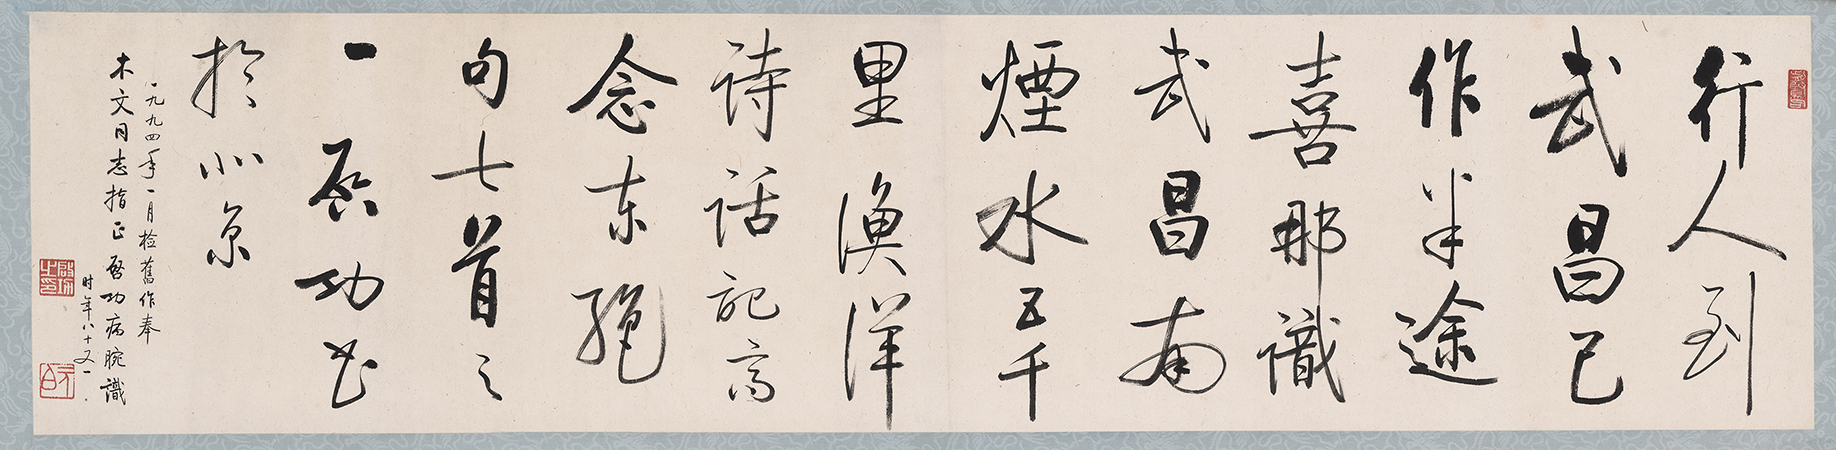 行人到
武昌已
作半途
喜那識
武昌南
煙水五千
里漁洋
诗话記高
念东絕
句七首之
一启功书
於北京
一九九四年一月检舊作奉
木文同志指正 啓功病腕識
时年八十又一
啟功之印
元白